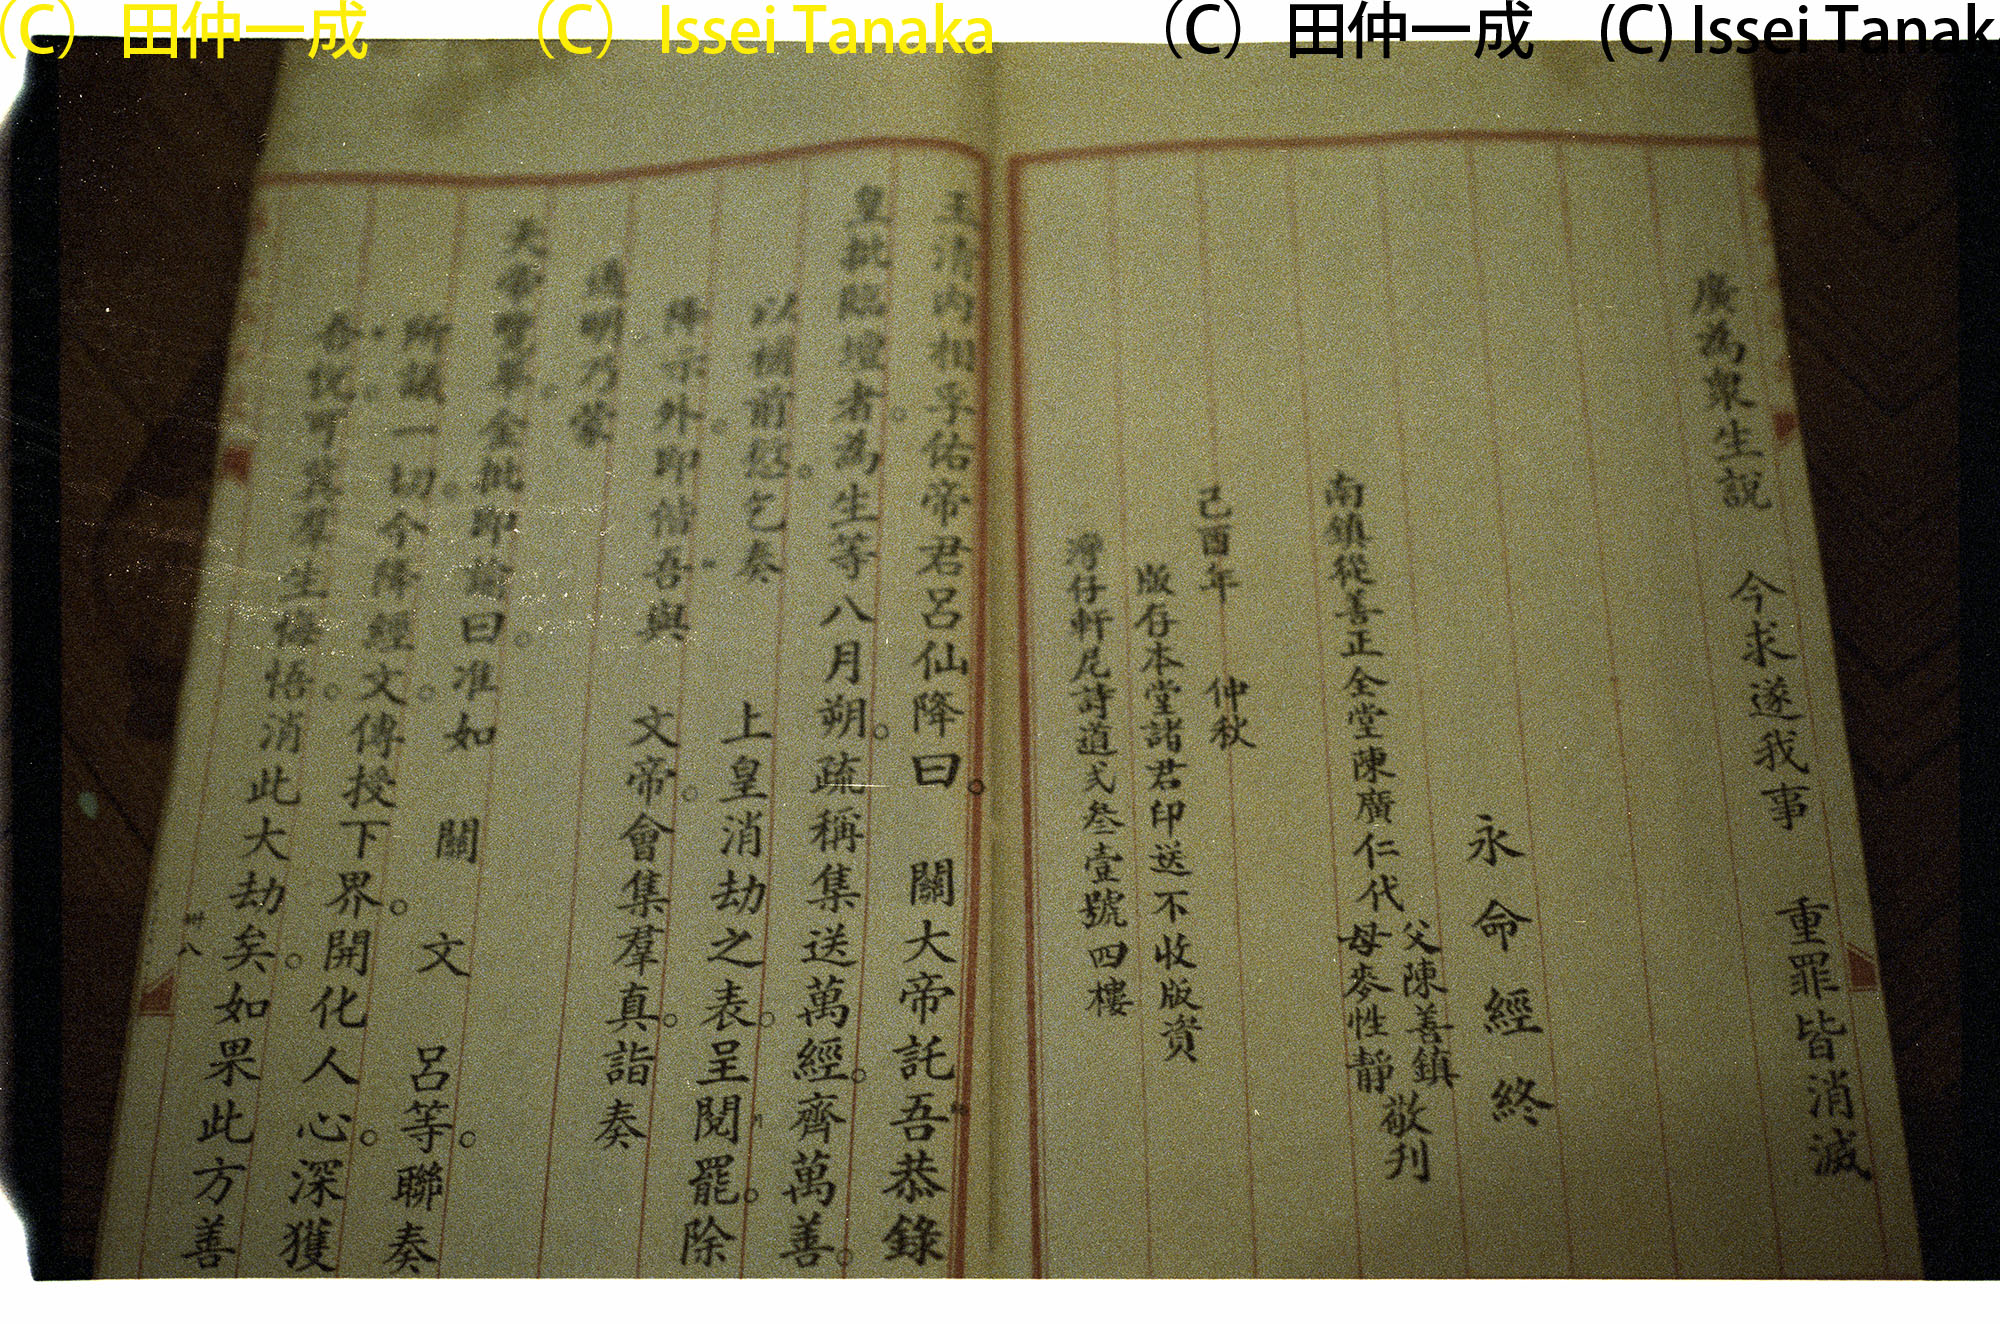 (C) 田仲一成 (C) Issei Tanaka (C) 田仲一成 (C) Issei Tanak
廣為眾生說 今求遂我事 重罪皆消滅
永命經終
南鎮從善正全堂陳廣仁代
父陳善鎮
母麥性靜
敬刊
己酉年 仲秋
版存本堂諸君印送不收版資
灣仔軒尼詩道弍叁壹號四樓
玉清內相孚佑帝君呂仙降曰。 關大帝託吾恭錄
皇批臨壇者。為生等八月朔。疏稱集送萬經。齊萬善。
以樹前愆。乞奏 上皇消劫之表。呈閱罷。除
降示外。即偕吾與 文帝。會集羣真。詣奏
通明乃蒙
天帝覽畢。金批即諭曰。准如 關 文 呂等。聯奏
所議一切。今降經文。傳授下界。開化人心。深獲
吾悅。可冀羣生悔悟。消此大劫矣。如果此方善
卅八